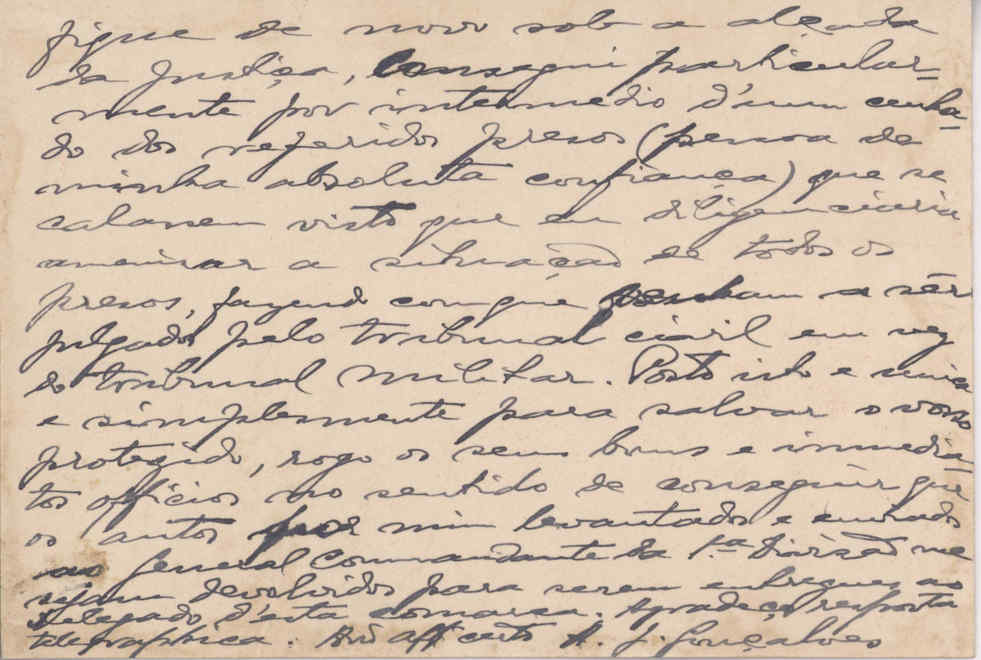 fique de novo sob a alçada
da Justiça, consegui particular-
mente por intermedio d'um cunha-
do dos referidos presos (pessoa de
minha absoluta confiança) que se
calassem visto que eu diligenciaria
amenisar a situação de todos os
presos, fazendo com que venham a sêr
julgados pelo tribunal civil em vez
do tribunal militar. Posto isto e unica
e simplesmente para salvar o vosso
protegido, rogo os seus bons e immedia-
tos officios no sentido de conseguir que
os autos por mim levantados e enviados
ao General Commandante da 1.ª Divisão me
sejam devolvidos para serem entregues ao
Delegado d'esta comarca. Agradeço resposta
telegraphica. Am.º aff certo A. J. Gonçalves